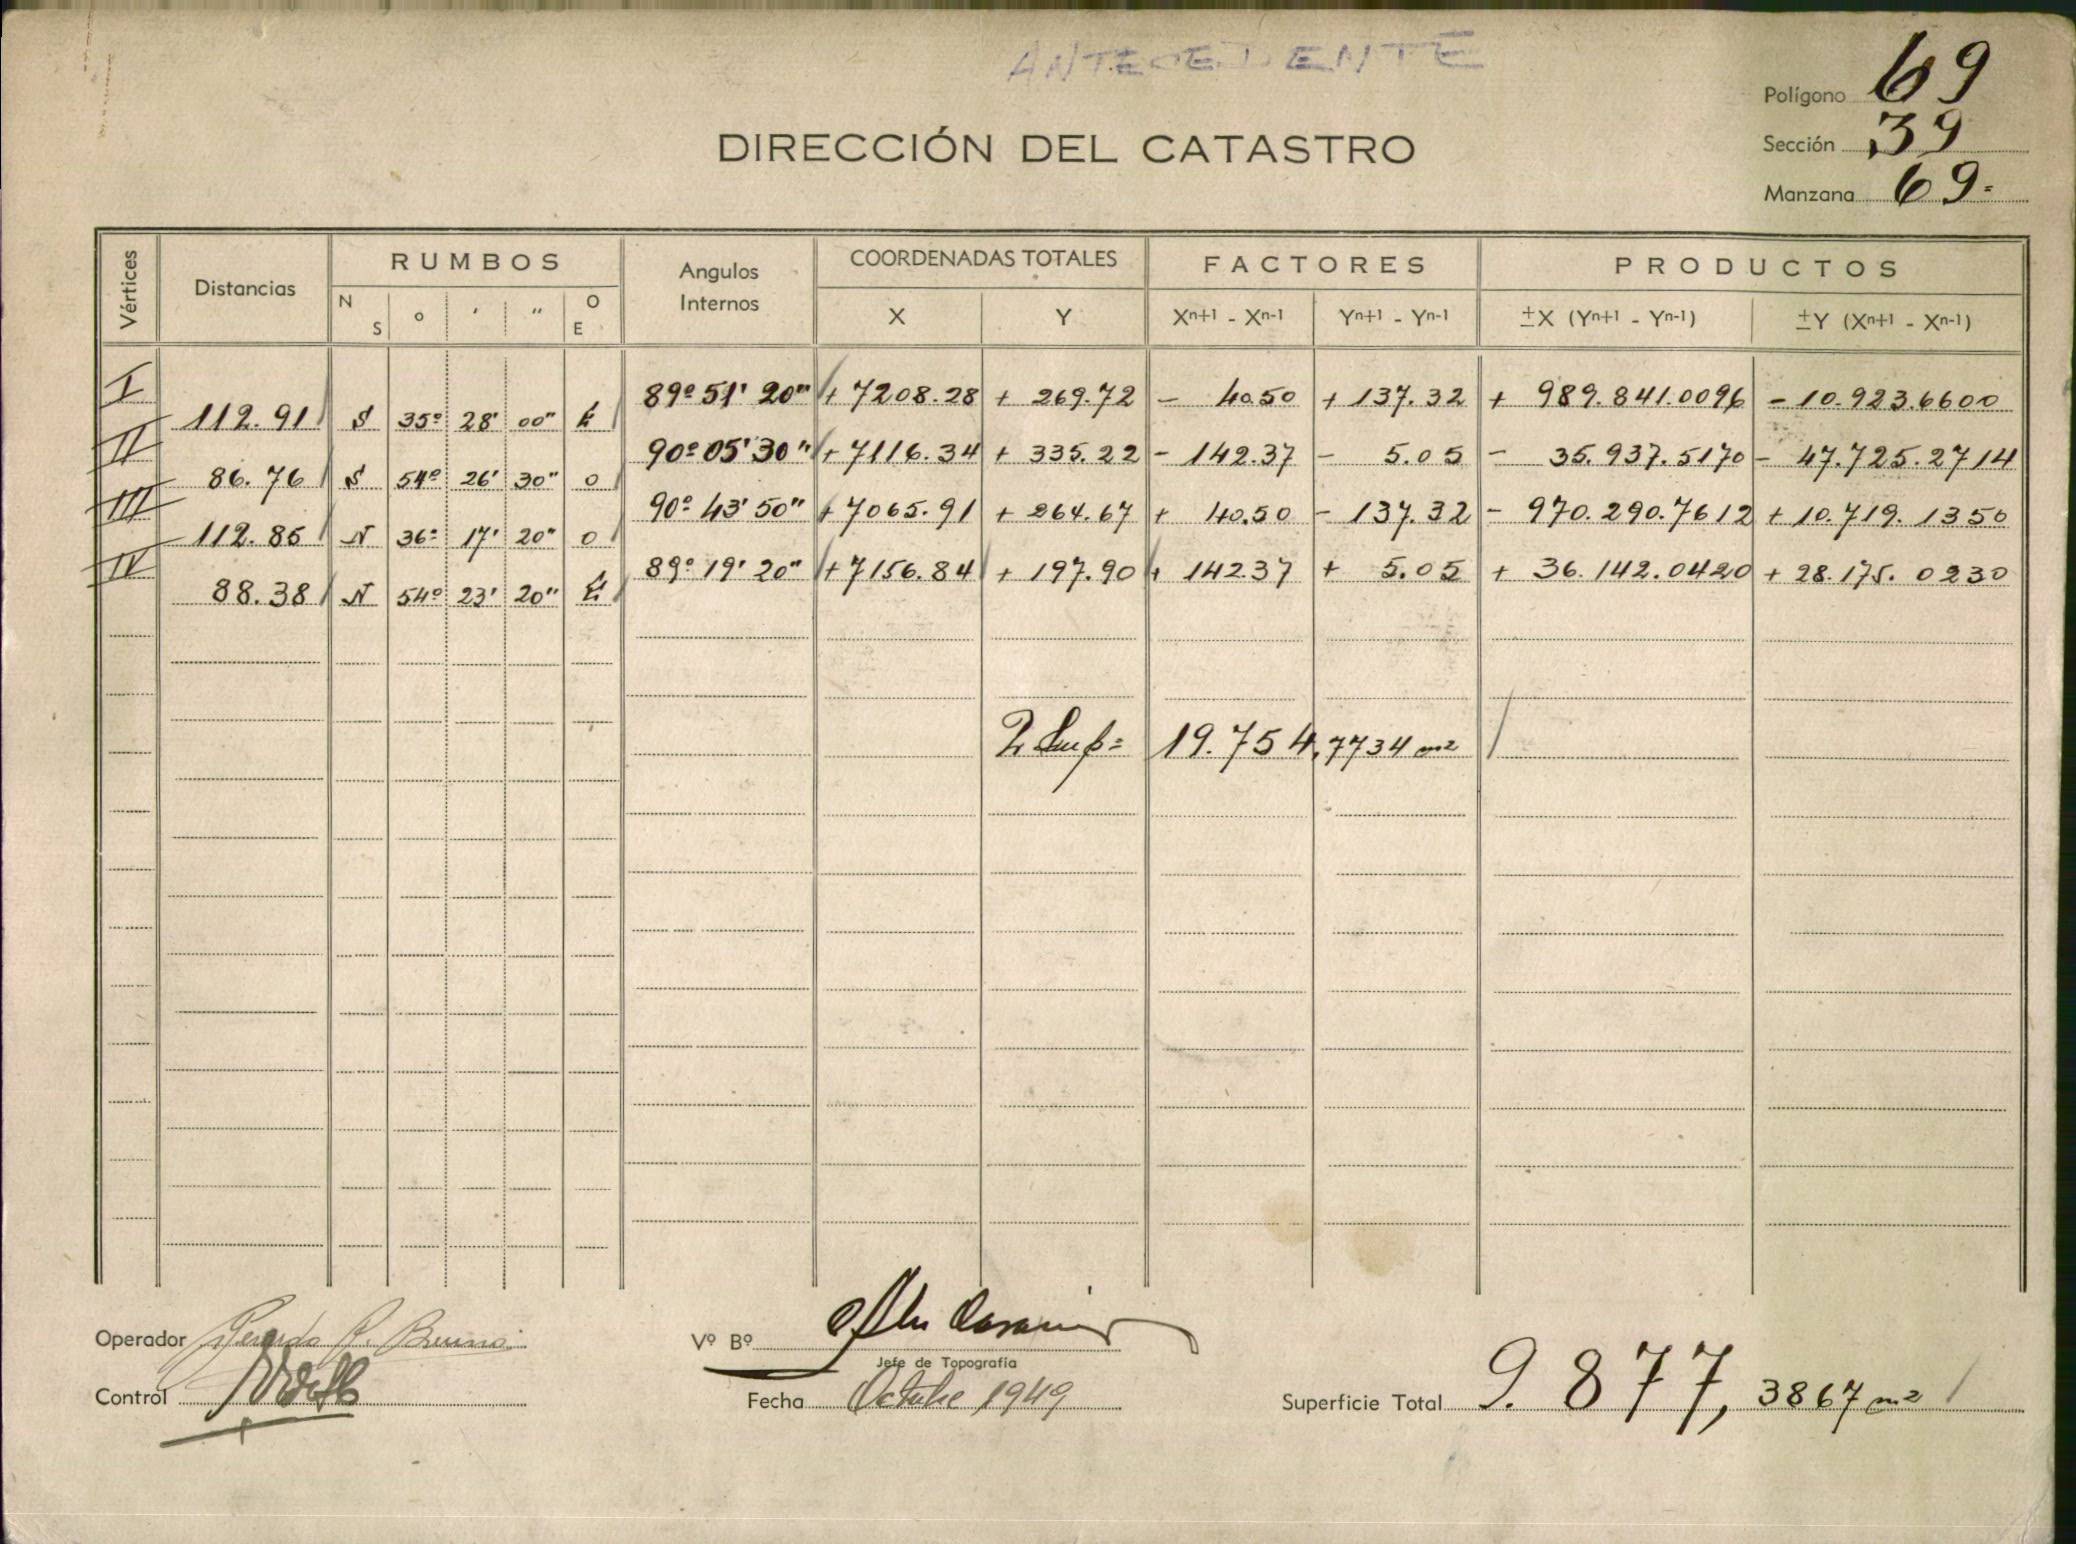 ANTECEDENTE
Polígono 69
DIRECCIÓN DEL CATASTRO
Sección 39
Manzana 69.=
Vértices Distancias RUMBOS Angulos Internos COORDENADAS TOTALES FACTORES PRODUCTOS
N S ° ' " O E X Y Xⁿ⁺¹ - Xⁿ⁻¹ Yⁿ⁺¹ - Yⁿ⁻¹ ±X (Yⁿ⁺¹ - Yⁿ⁻¹) ±Y (Xⁿ⁺¹ - Xⁿ⁻¹)
I 89º 51' 20" + 7208.28 + 269.72 - 40.50 + 137.32 + 989.841.0096 - 10.923.6600
112.91 S 35º 28' 00" E
II 90º 05' 30" + 7116.34 + 335.22 - 142.37 - 5.05 - 35.937.5170 - 47.725.2714
86.76 S 54º 26' 30" O
III 90º 43' 50" + 7065.91 + 264.67 + 40.50 - 137.32 - 970.290.7612 + 10.719.1350
112.85 N 36º 17' 20" O
IV 89º 19' 20" + 7156.84 + 197.90 + 142.37 + 5.05 + 36.142.0420 + 28.175.0230
88.38 N 54º 23' 20" E
2 Sup = 19.754,7734 m2
Operador Gerardo R. Bruno
Vº Bº
Jefe de Topografía
Control
Fecha Octubre 1949
Superficie Total 9.877,3867 m2